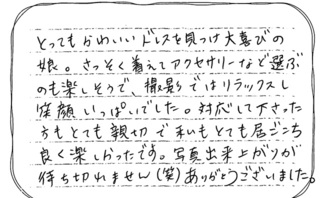 とってもかわいいドレスを見つけ大喜びの
娘。さっそく着えてアクセサリーなど選ぶ
のも楽しそうで、撮影ではリラックスし
笑顔いっぱいでした。対応して下さった
方もとても親切で私もとても居ごこち
良く楽しかったです。写真出来上がりが
待ち切れません(笑)ありがとうございました。